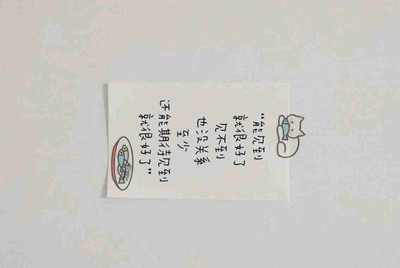 "能见到
就很好了
见不到
也没关系
至少
还能期待见到
就很好了"